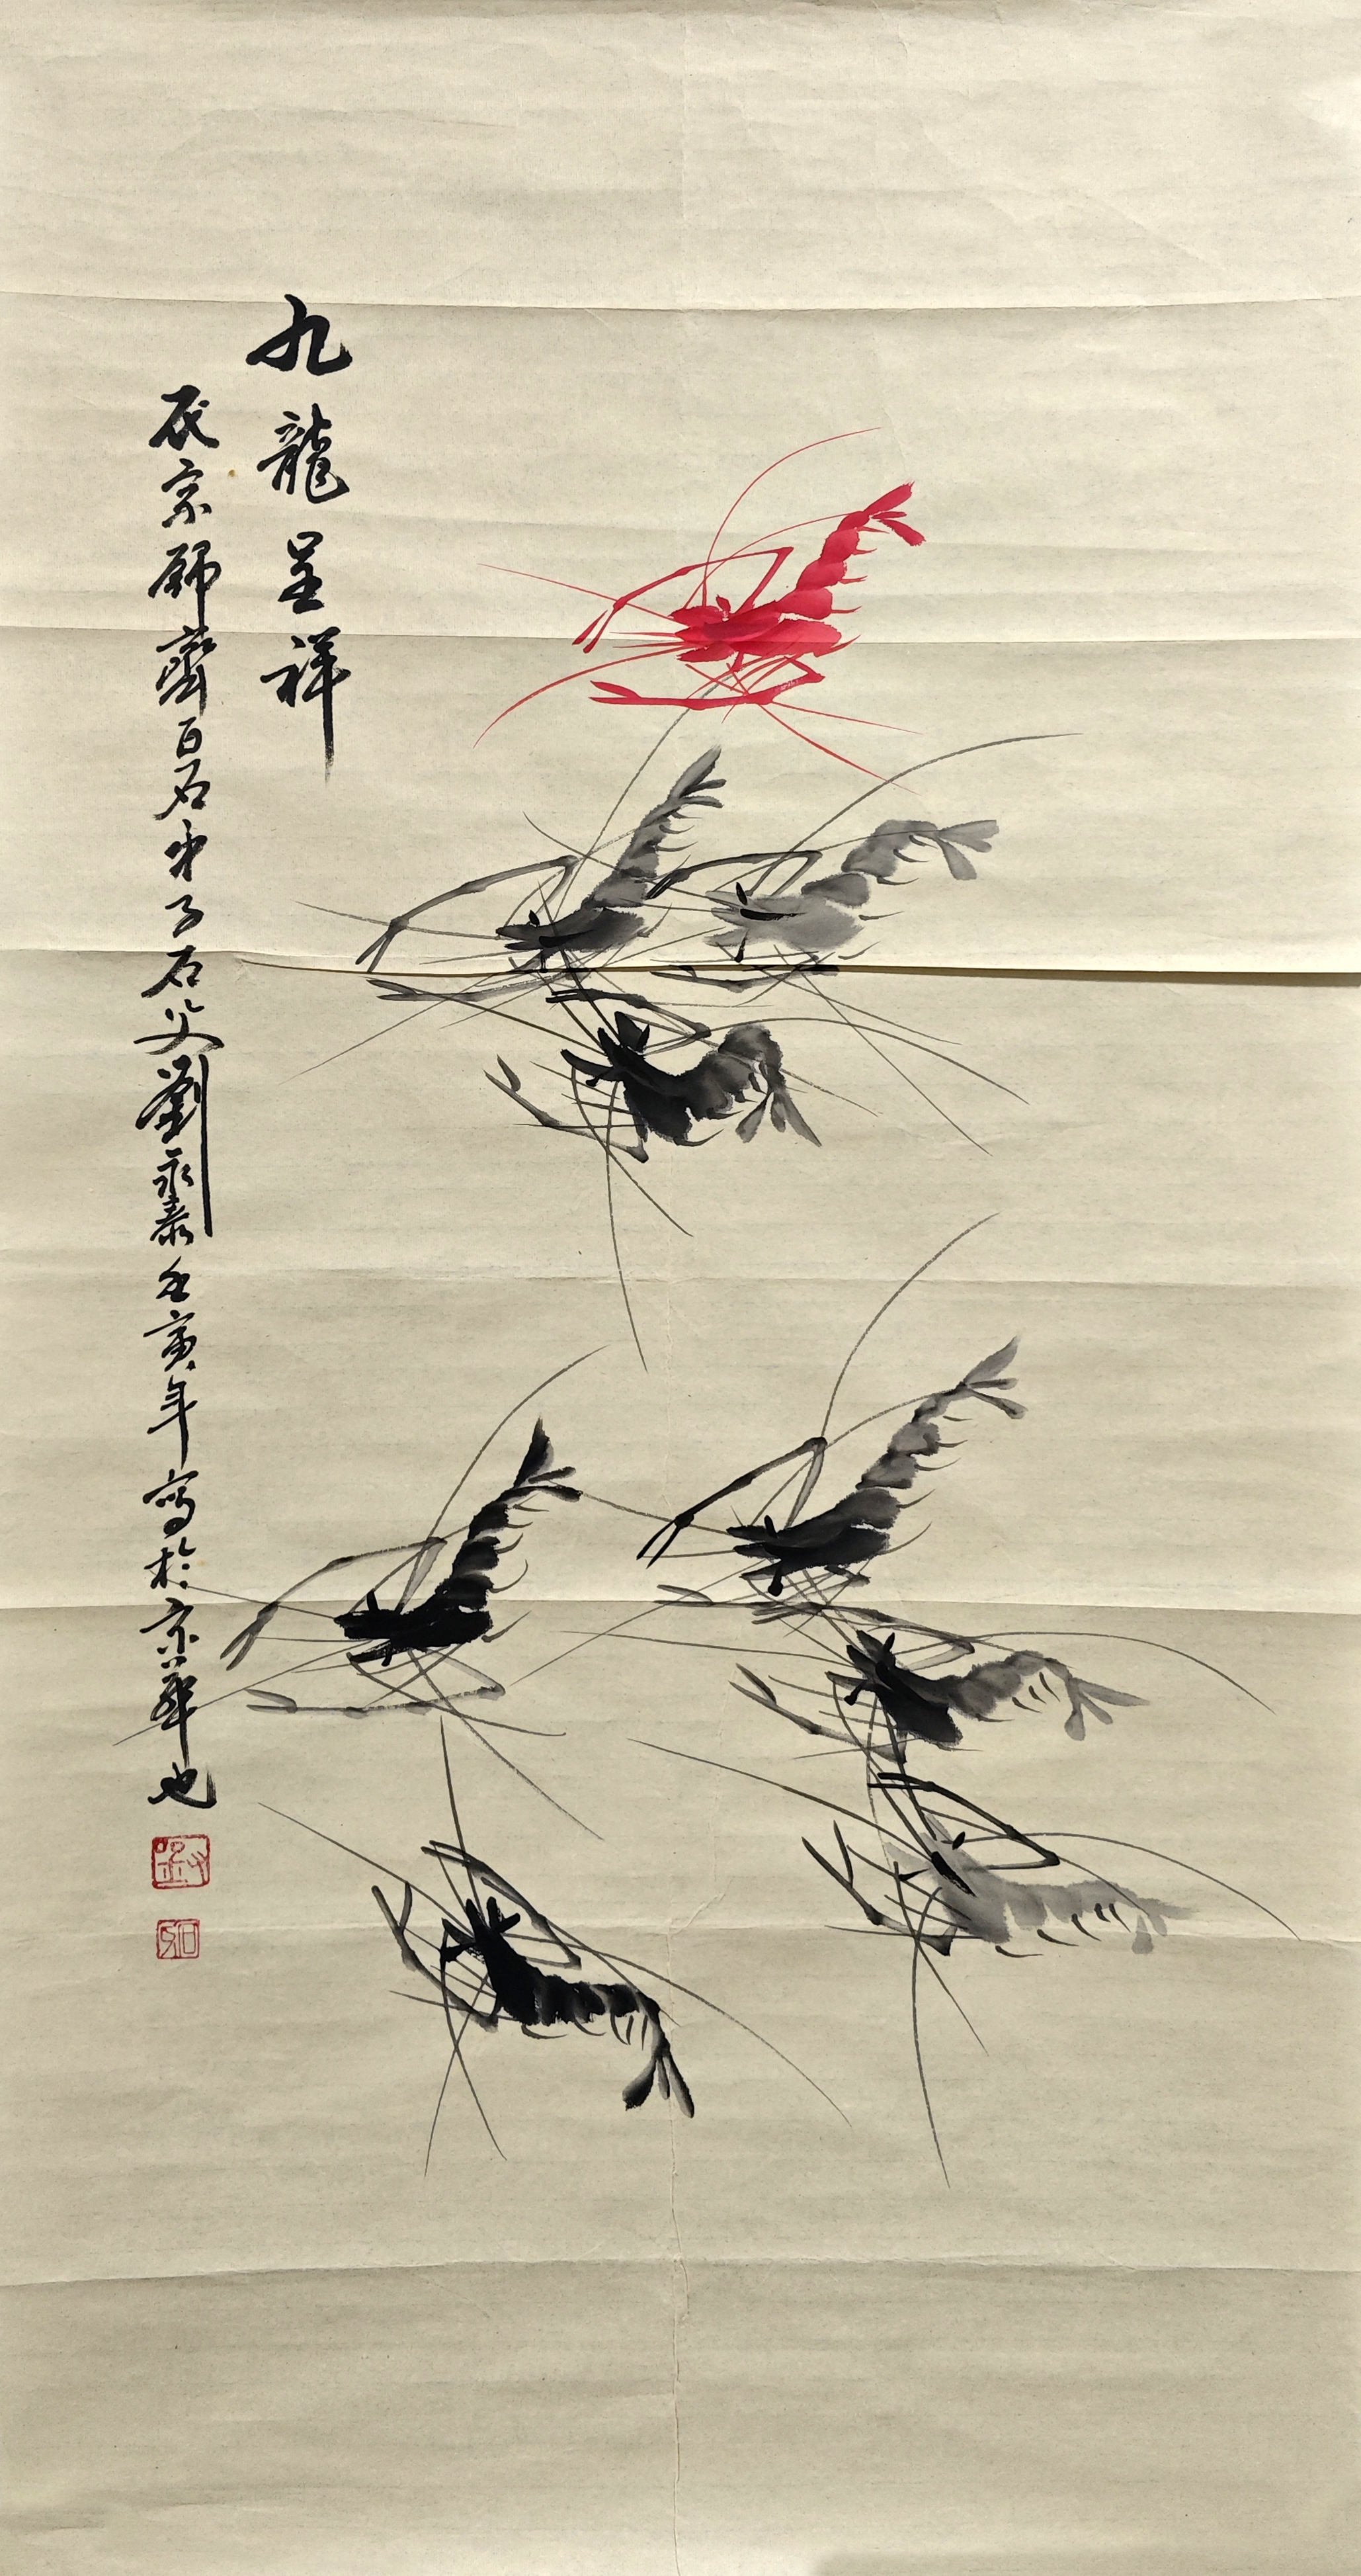 九龍呈祥
一代宗師齊白石弟子石父劉永泰壬寅年寫於京華也